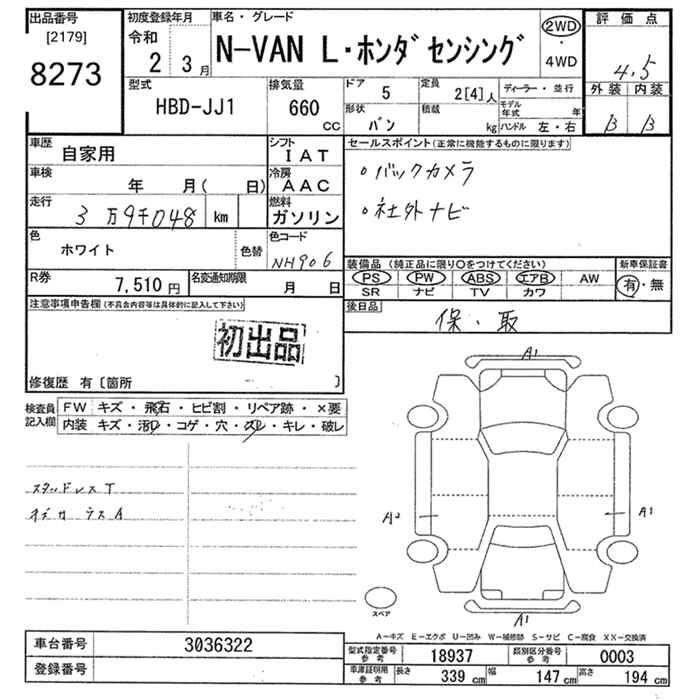 出品番号
[2179]
8273
初度登録年月
令和
2 3月
車名・グレード
N-VAN L・ホンダセンシング
2WD
・
4WD
評価点
4.5
外装 内装
B B
型式
HBD-JJ1
排気量
660
CC
ドア 5
定員 2[4]人
ディーラー・並行
形状 バン
積載 kg
モデル年式 年
ハンドル 左・右
車歴 自家用
シフト IAT
車検 年 月( 日)
冷房 AAC
走行 3万9千048 km
燃料 ガソリン
色 ホワイト
色替
色コード NH906
R券 7,510円
名変通知期限 月 日
セールスポイント(正常に機能するものに限ります)
。バックカメラ
。社外ナビ
装備品 (純正品に限り○をつけてください)
新車保証書
PS PW ABS エアB AW
SR ナビ TV カワ
有・無
後日品
保・取
注意事項申告欄(不具合内容等は具体的に記入して下さい)
初出品
修復歴 有〔箇所 〕
検査員記入欄
FW キズ・飛石・ヒビ割・リペア跡・×要
内装 キズ・汚レ・コゲ・穴・スレ・キレ・破レ
スタッドレスT
A1
A2
A1
スペア
A1
A-キズ E-エクボ U-凹み W-補修跡 S-サビ C-腐食 XX-交換済
車台番号 3036322
登録番号
型式指定番号 参考 18937
類別区分番号 参考 0003
車庫証明用 参考 長さ 339 cm 幅 147 cm 高さ 194 cm